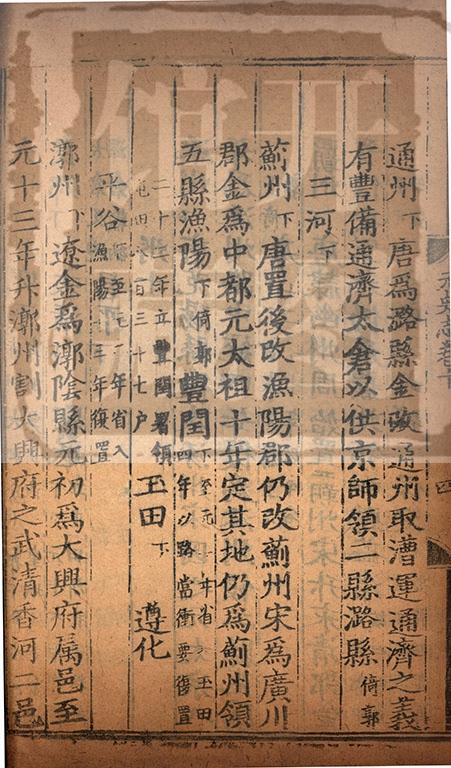 通州下唐爲潞縣金改通州取漕運通濟之義
有豐備通濟太倉以供京師領二縣潞縣倚郭
三河下
薊州下唐置後改漁陽郡仍改薊州宋爲廣川
郡金爲中都元太祖十年定其地仍爲薊州領
五縣漁陽下倚郭豐閏下至元二年省入玉田四年以路當衝要復置
二十二年立豐閏署領屯田八百三十七户玉田下遵化
平谷下至元二年省入漁陽十三年復置
漷州下遼金爲漷陰縣元初爲大興府属邑至
元十三年升漷州割大興府之武清香河二邑
四